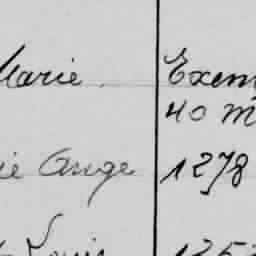 Marie Exem
40 m
ie Ange 1278
Louis 125